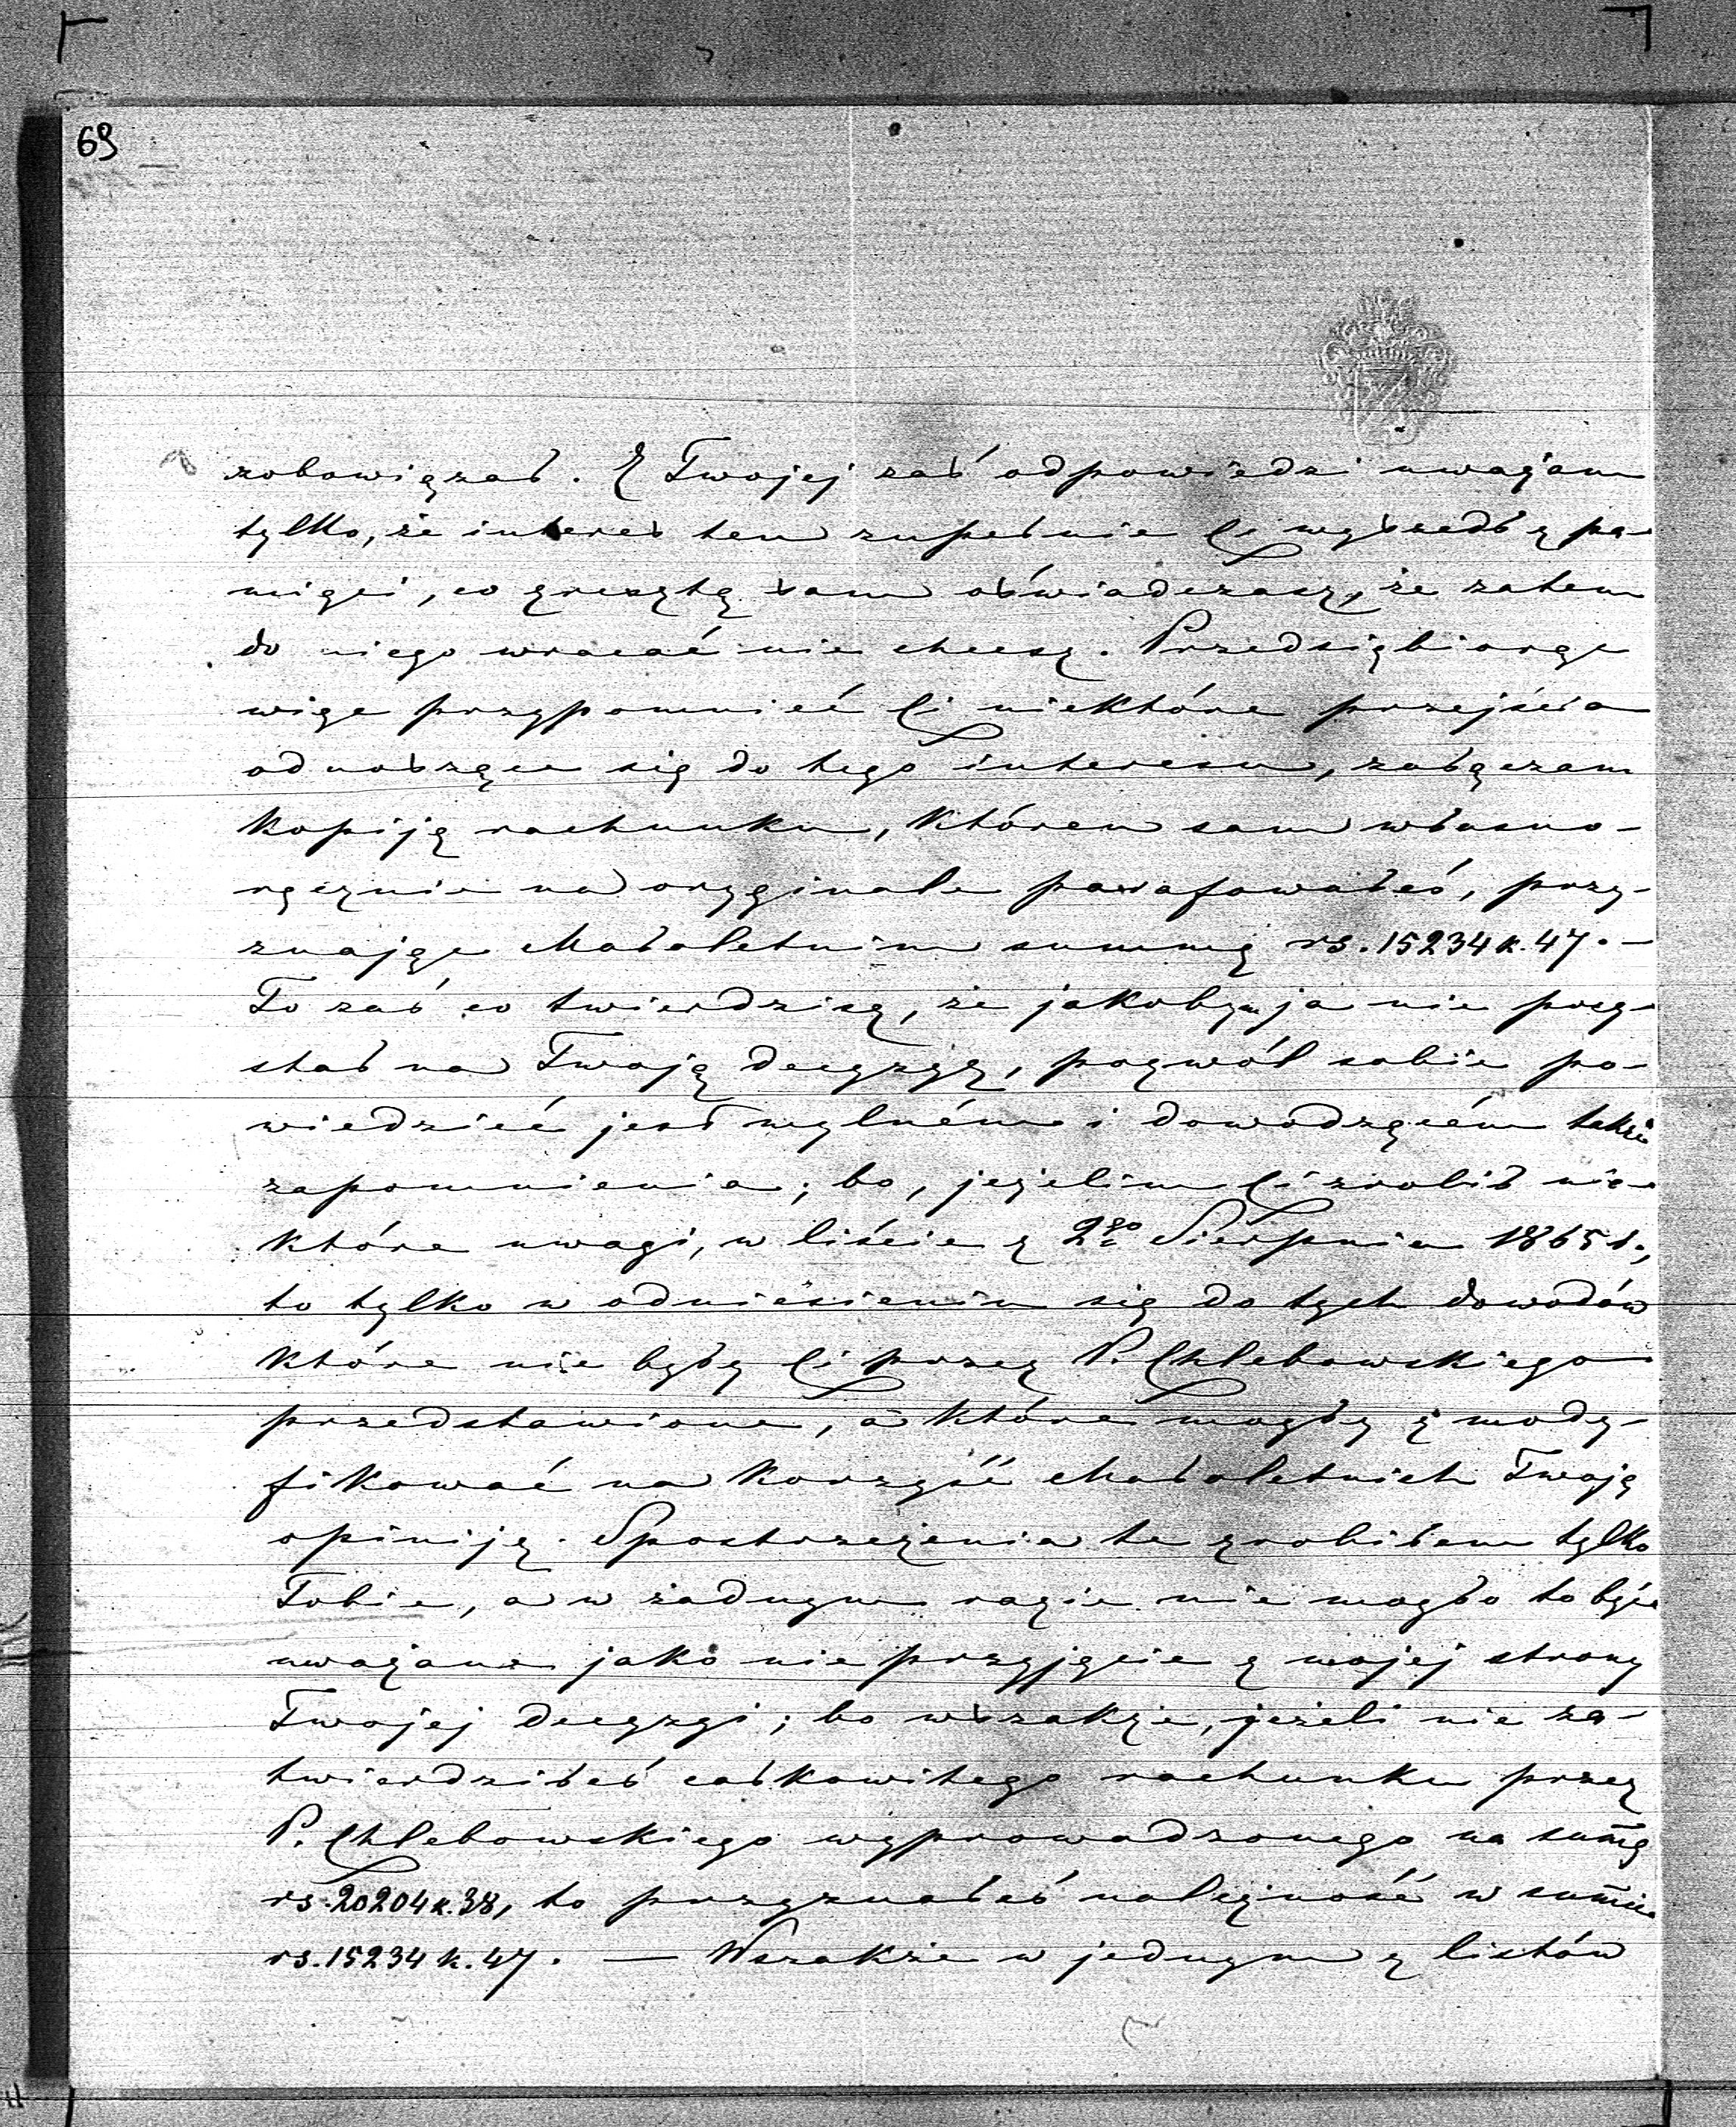 69
zobowiązał. Z Twojej zaś odpowiedzi uważam
tylko, że interes ten zupełnie Ci wyszedł z pa-
mięci, co zresztą sam oświadczasz, że zatem
do niego wracać nie chcesz. Przedsiębiorąc
więc przypomnieć Ci niektóre przejścia
odnoszące się do tego interesu, załączam
kopiję rachunku, któren sam własno-
ręcznie na oryginale parafowałeś, przy-
znając Małoletnim summę rs. 15234 k. 47. —
To zaś co twierdzisz, że jakobym ja nie przy-
stał na Twoją decyzyę, pozwól sobie po-
wiedzieć jest mylném i dowodzącém także
zapomnienia; bo, jeżelim Ci zrobił nie-
które uwagi, w liście z 2go Sierpnia 1865 r.,
to tylko w odniesieniu się do tych dowodów
które nie były Ci przez P. Chlebowskiego
przedstawione, a które mogły zmody-
fikować na korzyść Małoletnich Twoją
opiniję. Spostrzeżenia te zrobiłem tylko
Tobie, a w żadnym razie nie mogło to być
uważane jako nie przyjęcie z mojej strony
Twojej decyzyi; bo wszakże, jeżeli nie za-
twierdziłeś całkowitego rachunku przez
P. Chlebowskiego wyprowadzonego na sum̃ę
rs. 20204 k. 38, to przyznałeś należność w sum̃ie
rs. 15234 k. 47. — Wszakże w jednym z listów